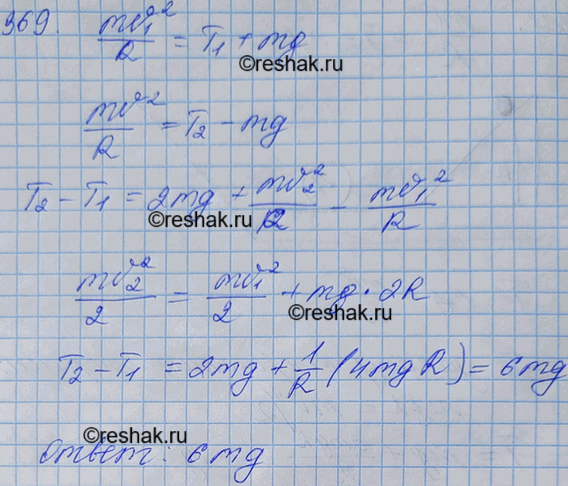 969. mv₁²/R = T₁ + mg
©reshak.ru
mv²/R = T₂ - mg
©reshak.ru
T₂ - T₁ = 2mg + mv₂²/R - mv₁²/R
©reshak.ru
mv₂²/2 = mv₁²/2 + mg · 2R
©reshak.ru
T₂ - T₁ = 2mg + 1/R (4mgR) = 6mg
©reshak.ru
Ответ: 6mg